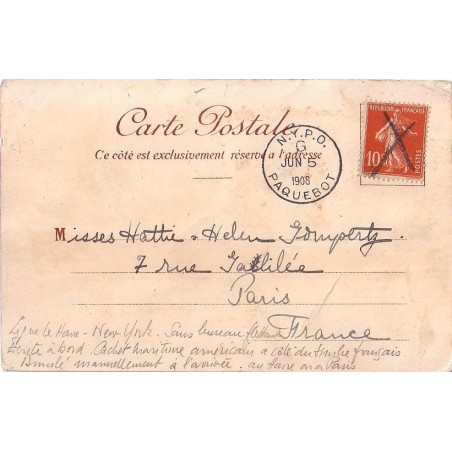 Carte Postale
Ce côté est exclusivement réservé a l'adresse
N.Y.P.O.
G
JUN 5
1908
PAQUEBOT
REPUBLIQUE FRANÇAISE
10
POSTES
Misses Hattie - Helen Gomperty
7 rue Galilée
Paris
France
Ligne le Havre - New York. Sans bureau
Ecrite à bord Cachet maritime américain a côté du timbre français
annulé manuellement a l'arrivée.